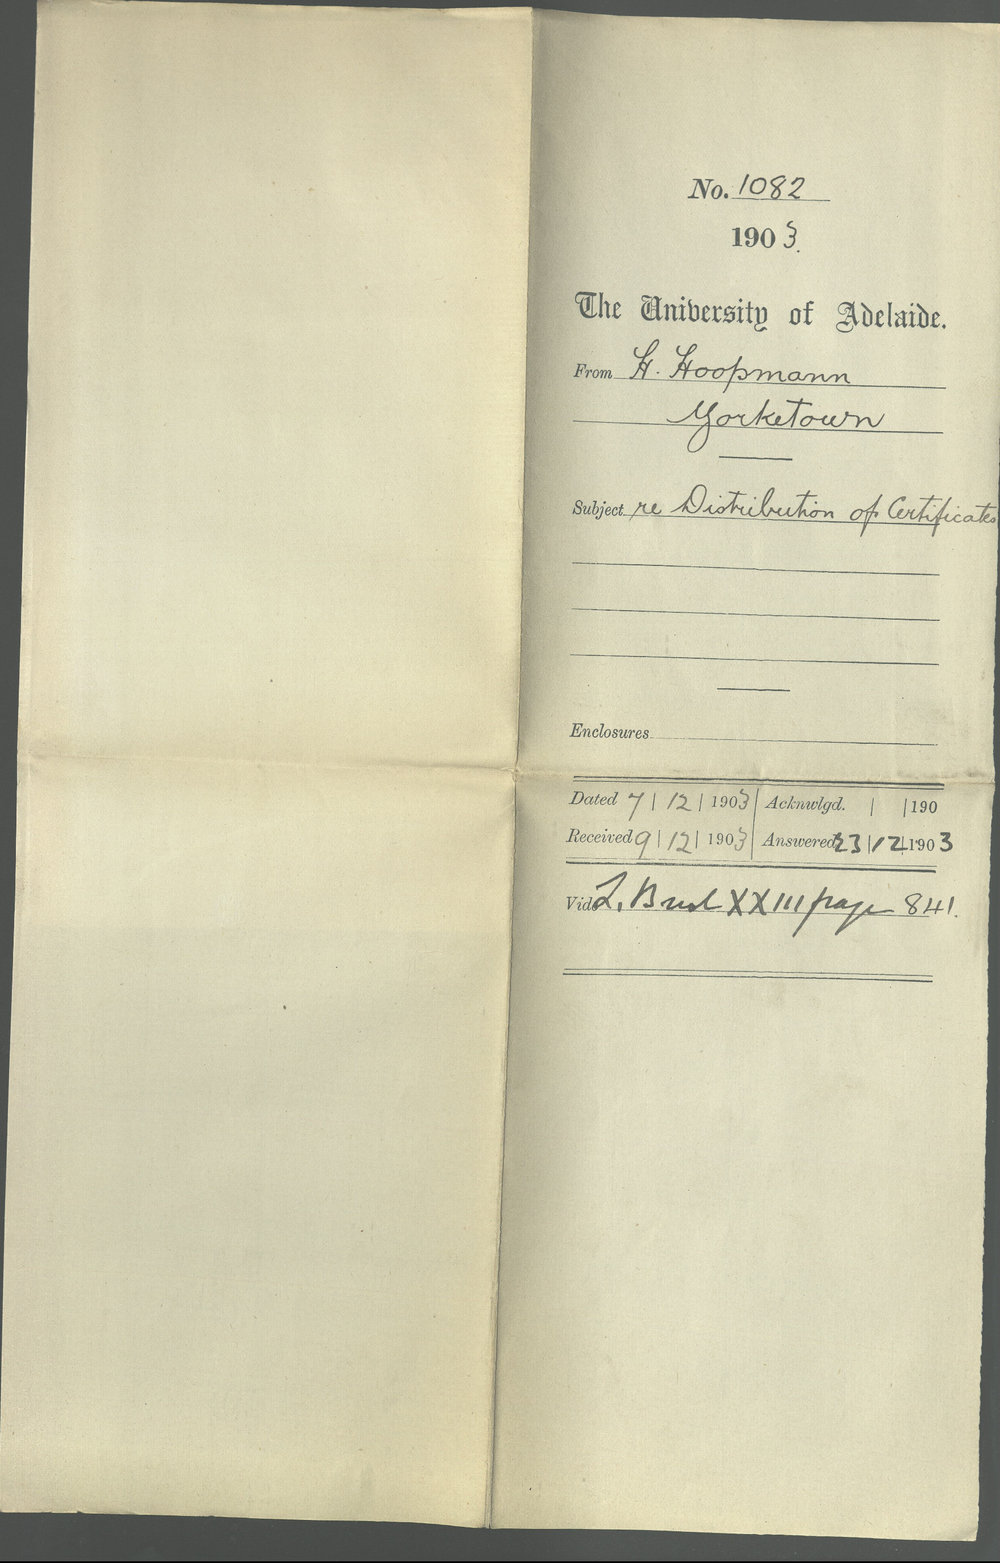 No. 1082
1903.
The University of Adelaide.
From H. Hoopmann
Yorketown
Subject re Distribution of Certificates
Enclosures
Dated 7 | 12 | 1903 Acknwlgd. | | 190
Received 9 | 12 | 1903 Answered 23 | 12 | 1903
Vide L. XXIII page 841.